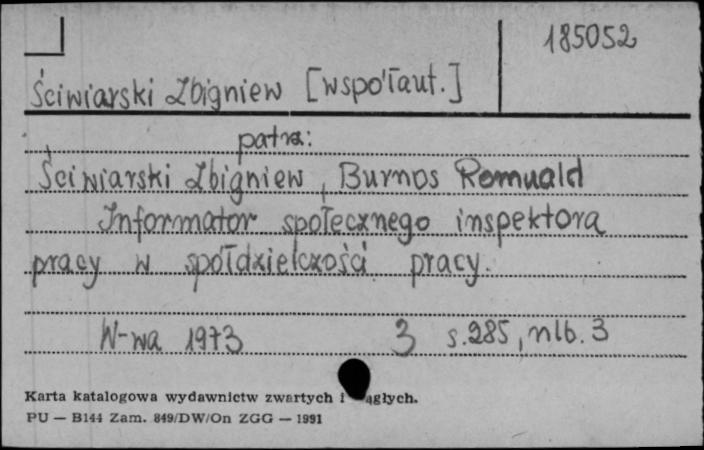 185052
Ściwiarski Zbigniew [współaut.]
patrz:
Ściwiarski Zbigniew, Burnos Romuald
Informator społecznego inspektora
pracy w spółdzielczości pracy.
W-wa 1973 3 s.285, nlb. 3
Karta katalogowa wydawnictw zwartych i ągłych.
PU — B144 Zam. 849/DW/On ZGG — 1991